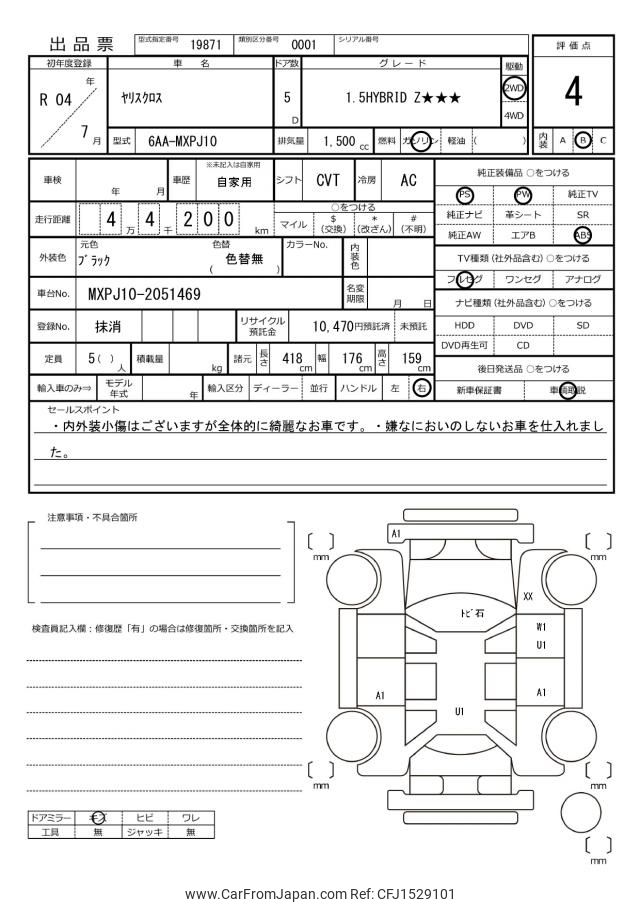 出品票 型式指定番号 19871 類別区分番号 0001 シリアル番号
評価点
初年度登録 車名 ドア数 グレード 駆動
R 04 年 7 月 ﾔﾘｽｸﾛｽ 5 D 1.5HYBRID Z★★★ 2WD 4WD
4
型式 6AA-MXPJ10 排気量 1,500 cc 燃料 ガソリン 軽油 ( ) 内装 A B C
車検 年 月 車歴 ※未記入は自家用 自家用 シフト CVT 冷房 AC
純正装備品 ○をつける
PS PW 純正TV
純正ナビ 革シート SR
純正AW エアB ABS
走行距離 4 万 4 千 2 0 0 km ○をつける
マイル $ (交換) * (改ざん) # (不明)
外装色 元色 ﾌﾞﾗｯｸ 色替 ( 色替無 ) カラーNo. 内装色
TV種類 (社外品含む) ○をつける
フルセグ ワンセグ アナログ
車台No. MXPJ10-2051469 名変期限 月 日
ナビ種類 (社外品含む) ○をつける
HDD DVD SD
DVD再生可 CD
登録No. 抹消 リサイクル預託金 10,470円預託済 未預託
定員 5 ( ) 人 積載量 kg 諸元 長さ 418 cm 幅 176 cm 高さ 159 cm
後日発送品 ○をつける
新車保証書 車輌取説
輸入車のみ⇒ モデル年式 年 輸入区分 ディーラー 並行 ハンドル 左 右
セールスポイント
・内外装小傷はございますが全体的に綺麗なお車です。・嫌なにおいのしないお車を仕入れまし
た。
注意事項・不具合箇所
A1
mm mm
XX
検査員記入欄：修復歴「有」の場合は修復箇所・交換箇所を記入
ﾄﾋﾞ石
W1
U1
A1 A1
U1
mm mm
ドアミラー キズ ヒビ ワレ
工具 無 ジャッキ 無
mm
www.CarFromJapan.com Ref: CFJ1529101